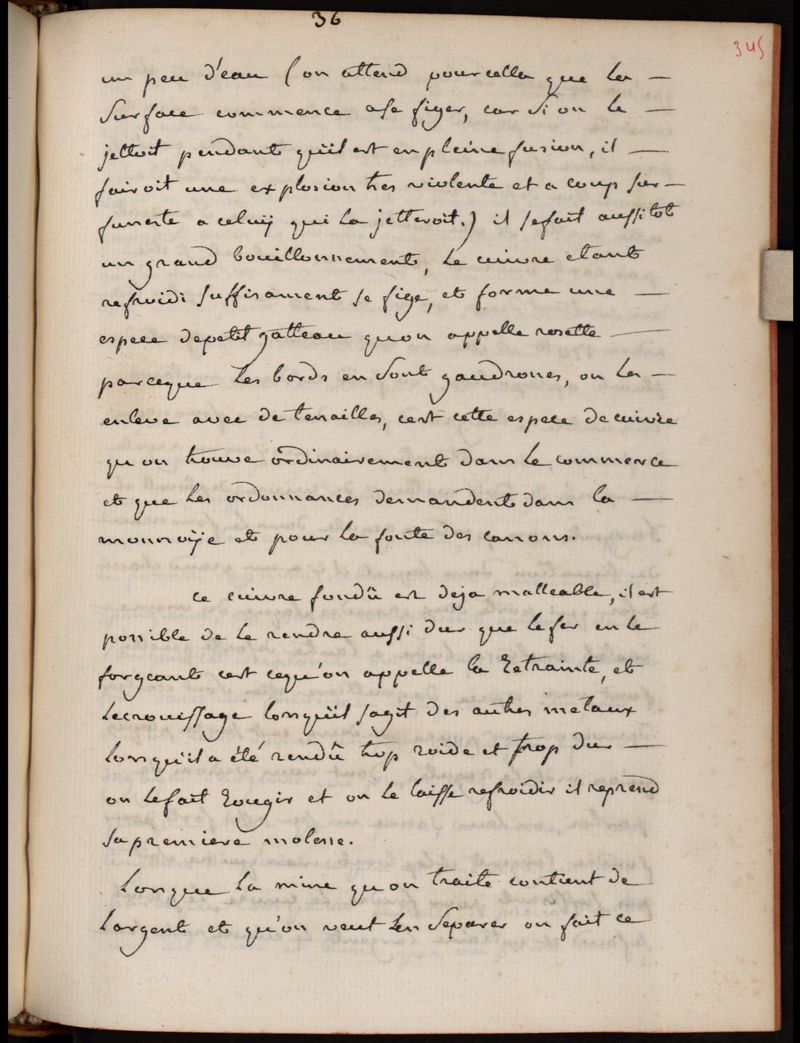 36
345
un peu d'eau (on attend pour cella que la —
Surface commence a se figer, car Si on le —
jettoit pendant qu'il est en pleine fusion, il —
fairoit une explosion tres violente et a coup sur —
funeste a celuij qui la jetteroit.) il se fait aussitot
un grand bouillonnement, Le cuivre etant
refroidi suffisament se fige, et forme une —
espece de petit gatteau qu'on appelle rosette —
parceque Les bords en Sont gaudronés, on La —
enleve avec de tenailles, cest cette espece de cuivre
qu on trouve ordinairement dans Le commerce
et que Les ordonnances demandent dans la —
monnoije et pour La fonte des canons.
ce cuivre fondû est deja malleable, il est
possible de Le rendre aussi dur que le fer en Le
forgeant cest cequ'on appelle la Retrainte, et
Lecrouissage Lorsqu'il sagit des autres metaux
Lorsqu'il a été rendû trop roide et trop dur —
on Le fait Rougir et on Le laisse refroidir il reprend
Sa premiere molesse.
Lorsque La mine qu on traite contient de
L'argent et qu'on veut L'en Separer on fait ce